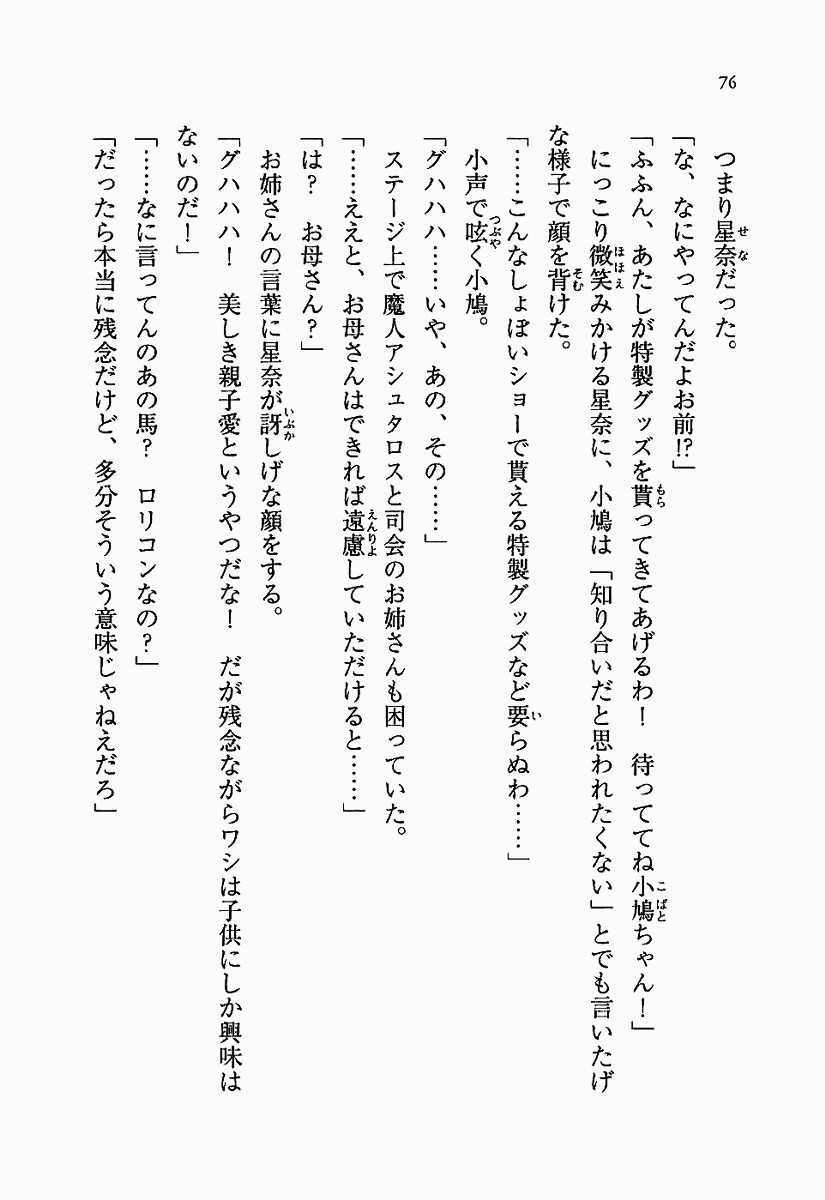 76
つまり星奈だった。
「な、なにやってんだよお前!?」
「ふふん、あたしが特製グッズを貰ってきてあげるわ！　待っててね小鳩ちゃん！」
にっこり微笑みかける星奈に、小鳩は「知り合いだと思われたくない」とでも言いたげ
な様子で顔を背けた。
「……こんなしょぼいショーで貰える特製グッズなど要らぬわ……」
小声で呟く小鳩。
「グハハハ……いや、あの、その……」
ステージ上で魔人アシュタロスと司会のお姉さんも困っていた。
「……ええと、お母さんはできれば遠慮していただけると……」
「は？　お母さん？」
お姉さんの言葉に星奈が訝しげな顔をする。
「グハハハ！　美しき親子愛というやつだな！　だが残念ながらワシは子供にしか興味は
ないのだ！」
「……なに言ってんのあの馬？　ロリコンなの？」
「だったら本当に残念だけど、多分そういう意味じゃねえだろ」